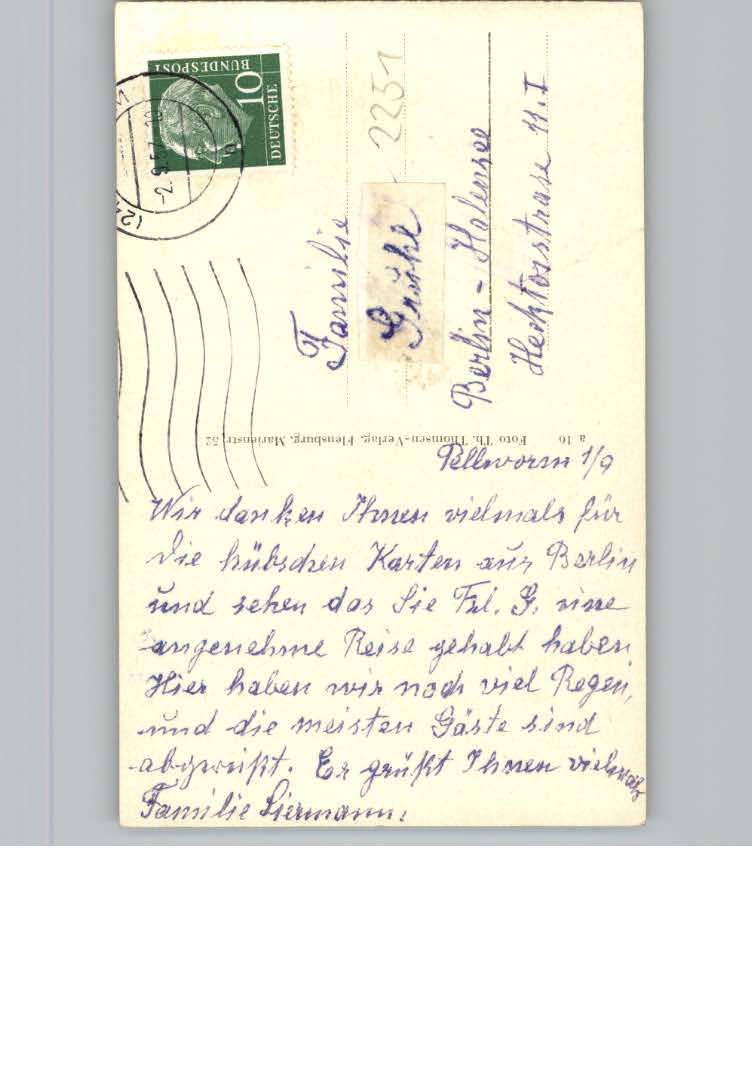 DEUTSCHE
BUNDESPOST
10
-2.9.57-10
b
2251
Familie
Grühl
Berlin - Halensee
Hecktorstrase 11.I
a 16 Foto Th. Thomsen-Verlag, Flensburg, Marienstr. 52
Pellworm 1/9
Wir danken Ihnen vielmals für
die hübschen Karten aus Berlin
und sehen das Sie Frl. G. eine
angenehme Reise gehabt haben
Hier haben wir noch viel Regen,
und die meisten Gäste sind
abgereißt. Er grüßt Ihnen vielmals
Familie Liermann.